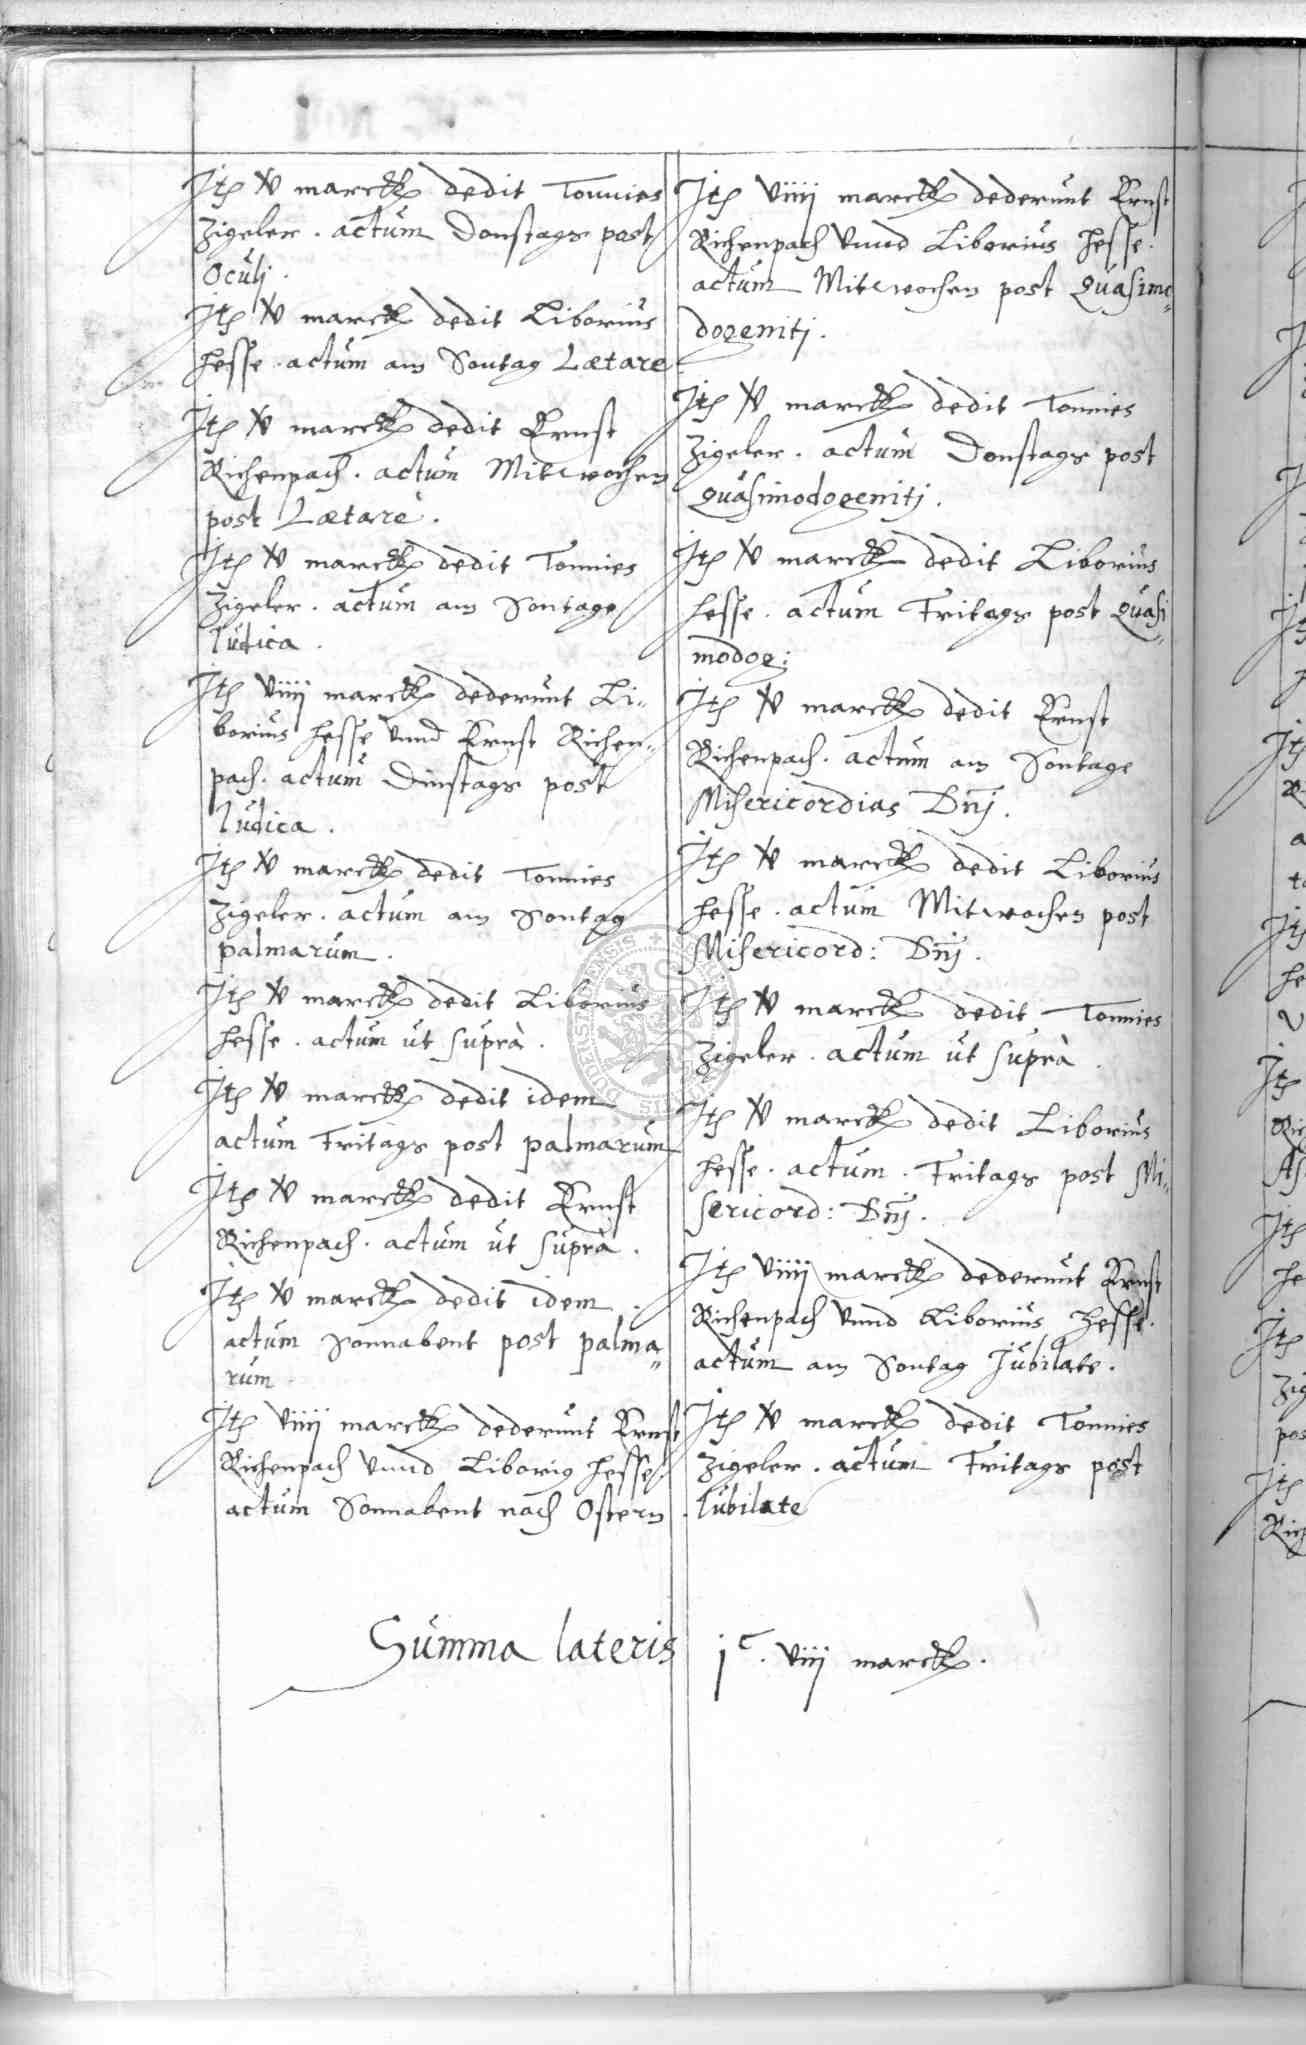 Jtē v̸ marckℓ dedit Tonnies
Zigeler . actum Donstags post
Oculj .
Jtē v̸ marckℓ dedit Liborius
Hesse . actum am Sontag Lætare
Jtē v̸ marckℓ dedit Ernst
Richenpach . actum Mitwochen
post Lætare .
Jtē v̸ marckℓ dedit Tonnies
Zigeler . actum am Sontage
Iudica .
Jtē viiij marckℓ dederunt Li„
borius Hesse vnnd Ernst Richen„
pach . actum Dinstags post
Iudica .
Jtē v̸ marckℓ dedit Tonnies
Zigeler . actum am Sontag
palmarum .
Jtē v̸ marckℓ dedit Liborius
Hesse . actum ut suprà .
Jtē v̸ marckℓ dedit idem
actum Fritags post palmarum
Jtē v̸ marckℓ dedit Ernst
Richenpach . actum ut suprà .
Jtē v̸ marckℓ dedit idem .
actum Sonnabent post palma„
rum
Jtē viiij marckℓ dederunt Ernst
Richenpach vnnd Liborig Hesse .
actum Sonnabent nach Ostern .
Jtē viiij marckℓ dederunt Ernst
Richenpach vnnd Liborius Hesse .
actum Mitwochen post Quasimo„
dogenitj .
Jtē v̸ marckℓ dedit Tonnies
Zigeler . actum Donstags post
Quasimodogenitj .
Jtē v̸ marckℓ dedit Liborius
Hesse . actum Fritags post Quasi„
modog:
Jtē v̸ marckℓ dedit Ernst
Richenpach . actum am Sontage
Misericordias Dn̄j .
Jtē v̸ marckℓ dedit Liborius
Hesse . actum Mitwochen post
Misericord: Dn̄j .
Jtē v̸ marckℓ dedit Tonnies
Zigeler . actum ut suprà .
Jtē v̸ marckℓ dedit Liborius
Hesse . actum . Fritags post Mi„
sericord: Dn̄j .
Jtē viiij marckℓ dederunt Ernst
Richenpach vnnd Liborius Hesse .
actum am Sontag Jubilate .
Jtē v̸ marckℓ dedit Tonnies
Zigeler . actum Fritags post
Iubilate
Summa lateris jᶜ . viij marckℓ .